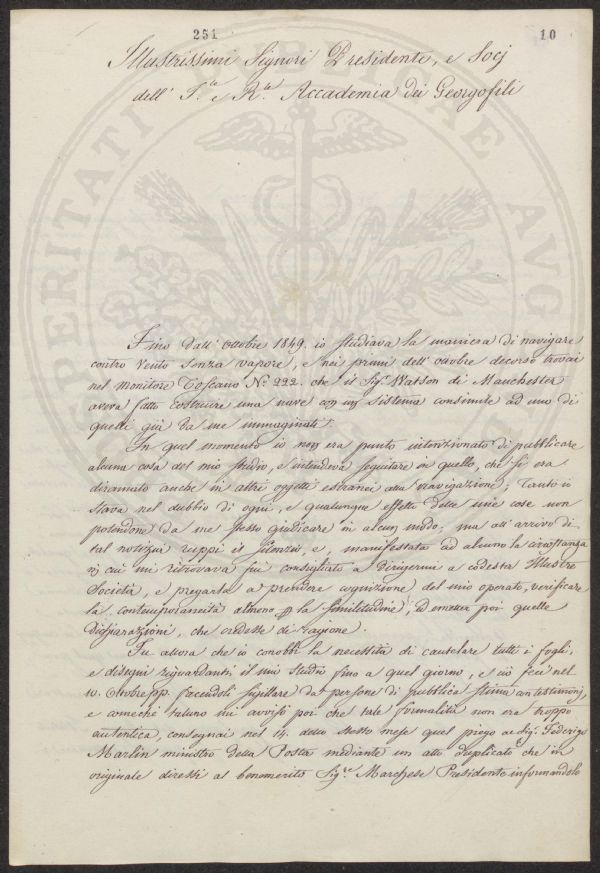 251 10
Illustrissimi Signori Presidente, e Socj
dell' I. e R.le Accademia dei Georgofili
PROSPERITATI PUBLICAE AUG
Fino dall' ottobre 1849. io studiava la maniera di navigare
contro vento senza vapore, e nei primi dell' ottobre decorso trovai
nel Monitore Toscano N.o 222. che il Sig.r Watson di Manchester
aveva fatto costruire una nave con un sistema consimile ad uno di
quelli già da me immaginati.
In quel momento io non era punto intenzionato di pubblicare
alcuna cosa del mio studio, e intendeva seguitare in quello, che si era
diramato anche in altri oggetti estranei alla navigazione; Tanto io
stava nel dubbio di ogni, e qualunque effetto delle mie cose non
potendone da me stesso giudicare in alcun modo; ma all' arrivo di
tal notizia ruppi il silenzio, e, manifestata ad alcuno la circostanza
in cui mi ritrovava fui consigliato a dirigermi a codesta Illustre
Società, e pregarla a prendere cognizione del mio operato, verificare
la contemporaneità almeno p la similitudine, ed emetter poi quelle
Dichiarazioni, che credesse di ragione.
Fu allora che io conobbi la necessità di cautelare tutti i fogli,
e disegni riguardanti il mio studio fino a quel giorno, e ciò feci nel
10. Ottobre pp. facendoli sigillare da persone di pubblica stima con testimonj,
e comechè taluno mi avvisò poi che tale formalità non era troppo
autentica, consegnai nel 14. dello stesso mese quel piego al Sig.r Federigo
Marlin ministro della Posta mediante un atto duplicato che in
originale diressi al benemerito Sig.re Marchese Presidente informandolo